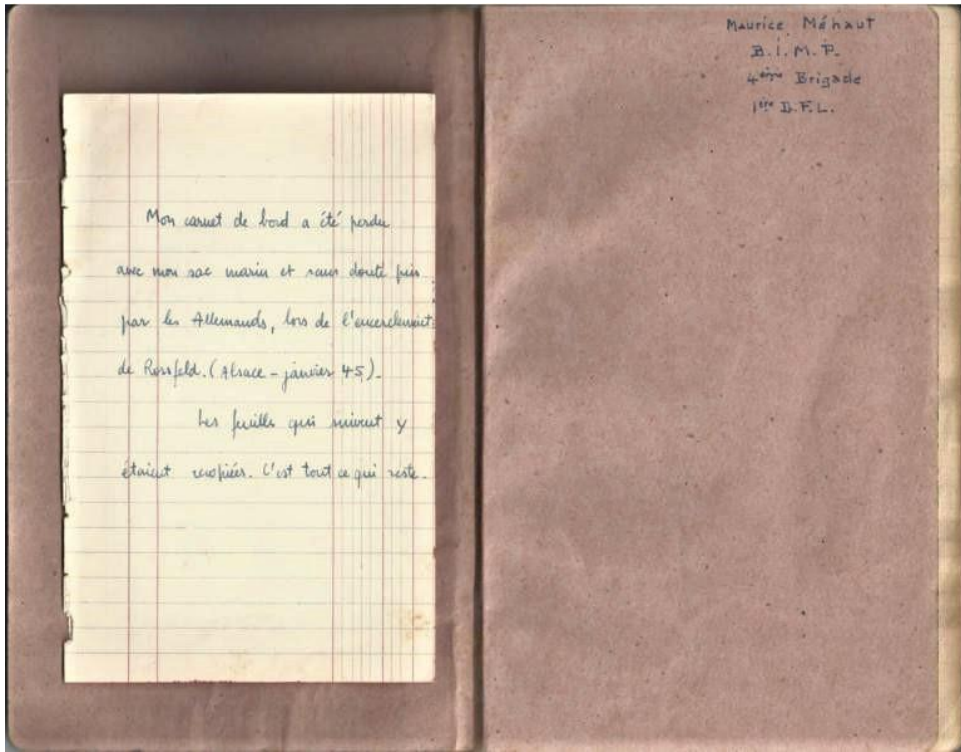 Mon carnet de bord a été perdu
avec mon sac marin et sans doute pris
par les Allemands, lors de l'encerclement
de Rossfeld. (Alsace - janvier 45).
Les feuilles qui suivent y
étaient recopiées. C'est tout ce qui reste.
Maurice Méhaut
B.I.M.P.
4ème Brigade
1ère D.F.L.